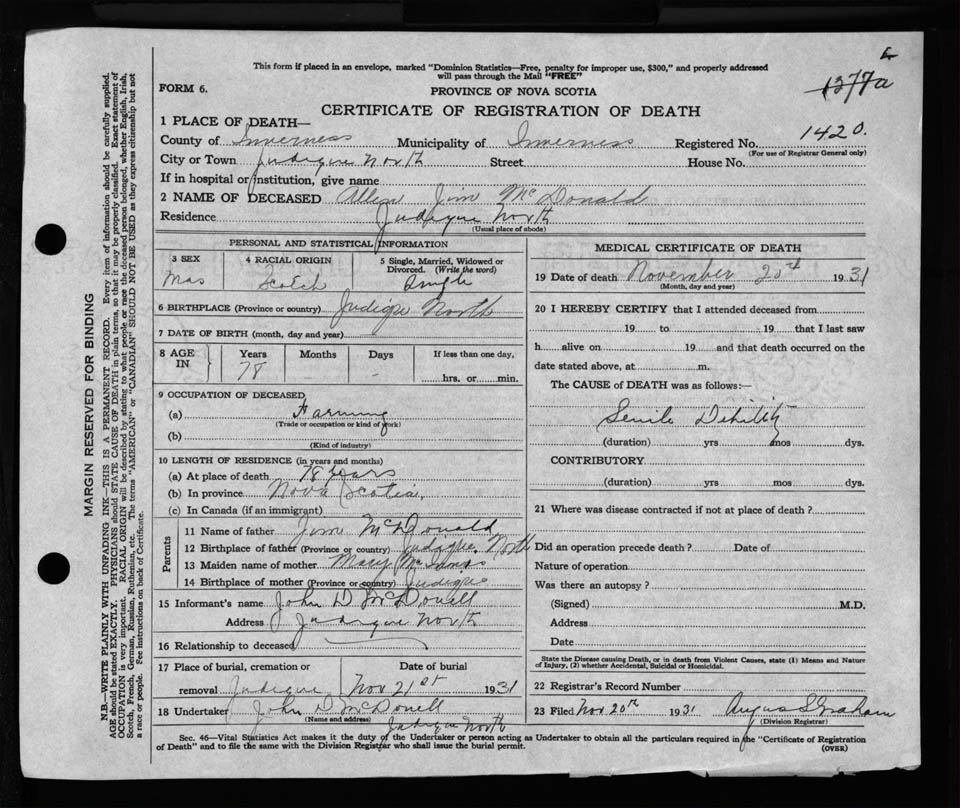 This form if placed in an envelope, marked "Dominion Statistics—Free, penalty for improper use, $300," and properly addressed
will pass through the Mail "FREE"
FORM 6.
PROVINCE OF NOVA SCOTIA
1377a
CERTIFICATE OF REGISTRATION OF DEATH
1 PLACE OF DEATH—
County of Inverness Municipality of Inverness Registered No. 1420.
(For use of Registrar General only)
City or Town Judique North Street House No.
If in hospital or institution, give name
2 NAME OF DECEASED Allen Jim McDonald
Residence Judique North
(Usual place of abode)
PERSONAL AND STATISTICAL INFORMATION
3 SEX 4 RACIAL ORIGIN 5 Single, Married, Widowed or
Divorced. (Write the word)
Mas Scotch Single
6 BIRTHPLACE (Province or country) Judique North
7 DATE OF BIRTH (month, day and year)
8 AGE IN Years Months Days If less than one day,
78 - hrs. or min.
9 OCCUPATION OF DECEASED
(a) Farming
(Trade or occupation or kind of work)
(b)
(Kind of industry)
10 LENGTH OF RESIDENCE (in years and months)
(a) At place of death 78 years
(b) In province Nova Scotia,
(c) In Canada (if an immigrant)
Parents
11 Name of father Jim McDonald
12 Birthplace of father (Province or country) Judique North
13 Maiden name of mother Mary
14 Birthplace of mother (Province or country) Judique
15 Informant's name John D McDonell
Address Judique North
16 Relationship to deceased
17 Place of burial, cremation or Date of burial
removal Judique Nov 21st 1931
18 Undertaker John D McDonell
(Name and address)
Judique North
MEDICAL CERTIFICATE OF DEATH
19 Date of death November 20th 1931
(Month, day and year)
20 I HEREBY CERTIFY that I attended deceased from
19 to 19 that I last saw
h alive on 19 and that death occurred on the
date stated above, at m.
The CAUSE of DEATH was as follows:—
Senile Debility
(duration) yrs mos dys.
CONTRIBUTORY
(duration) yrs mos dys.
21 Where was disease contracted if not at place of death?
Did an operation precede death? Date of
Nature of operation
Was there an autopsy?
(Signed) M.D.
Address
Date
State the Disease causing Death, or in death from Violent Causes, state (1) Means and Nature
of Injury, (2) whether Accidental, Suicidal or Homicidal.
22 Registrar's Record Number
23 Filed Nov 20th 1931 Angus S Graham
(Division Registrar)
Sec. 46—Vital Statistics Act makes it the duty of the Undertaker or person acting as Undertaker to obtain all the particulars required in the "Certificate of Registration
of Death" and to file the same with the Division Registrar who shall issue the burial permit. (OVER)
MARGIN RESERVED FOR BINDING
N.B.—WRITE PLAINLY WITH UNFADING INK—THIS IS A PERMANENT RECORD. Every item of information should be carefully supplied.
AGE should be stated EXACTLY. PHYSICIANS should STATE CAUSE OF DEATH in plain terms, so that it may be properly classified. Exact statement of
OCCUPATION is very important. RACIAL ORIGIN will be described by stating to what people or race the deceased person belonged, whether English, Irish,
Scotch, French, German, Russian, Ruthenian, etc. The terms "AMERICAN" or "CANADIAN" SHOULD NOT BE USED as they express citizenship but not
a race or people. See instructions on back of Certificate.